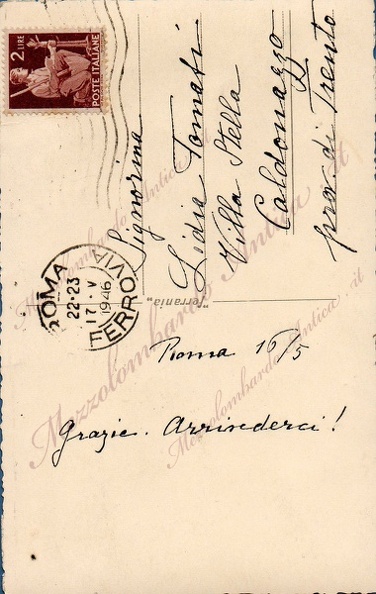 2 LIRE
POSTE ITALIANE
ROMA FERROVIA
22·23
17·V
1946
Signorina
Lidia Tomasi
Villa Stella
Caldonazzo
prov. di Trento
"Ferrania"
Roma 16/5
Grazie. Arrivederci!
Mezzolombardo Antica . it
Mezzolombardo Antica . it